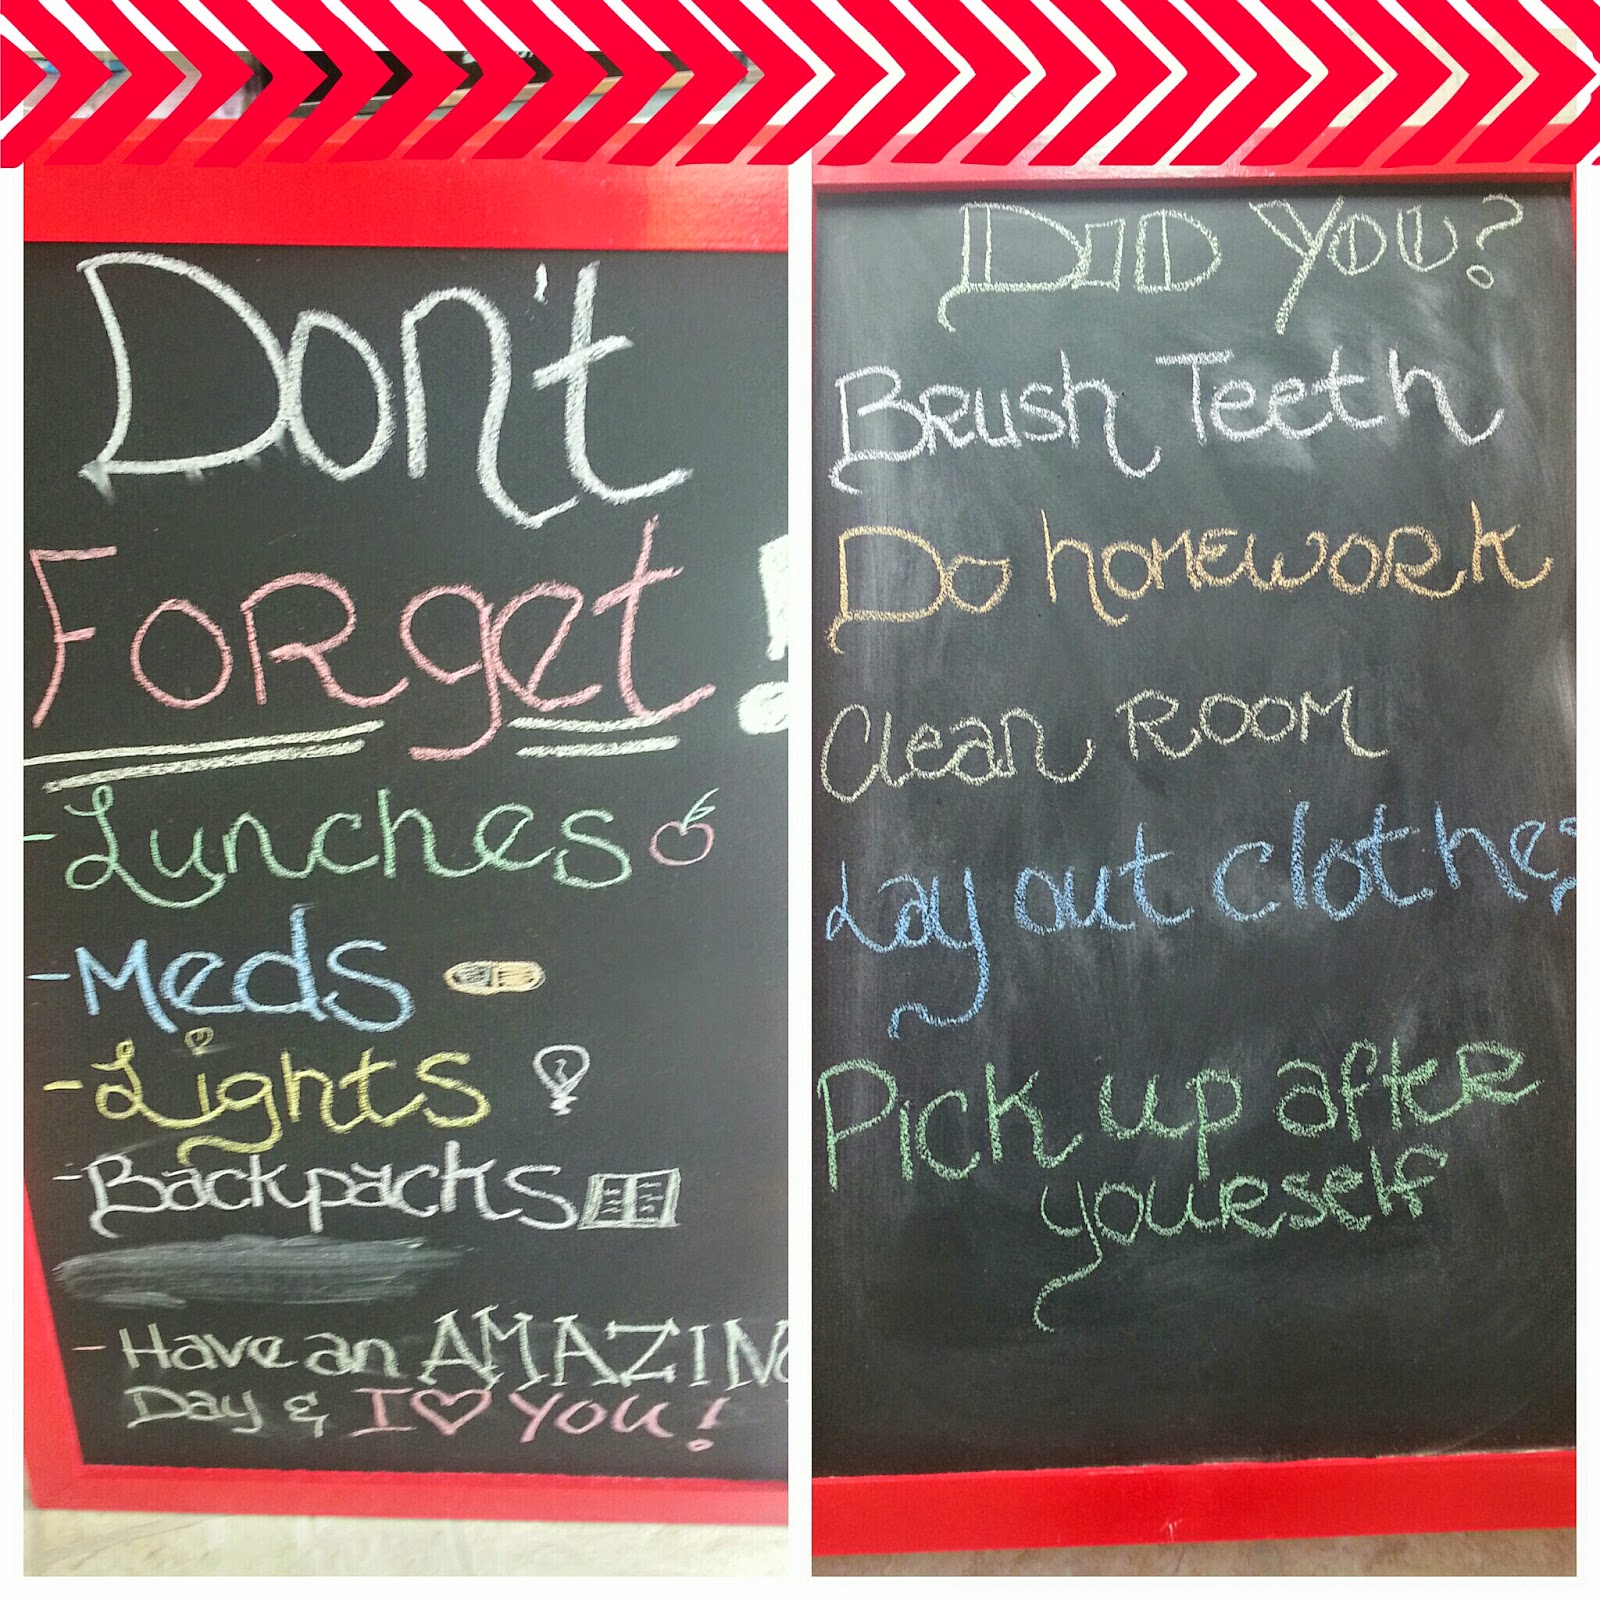 Don't
Forget!
-Lunches
-Meds
-Lights
-Backpacks
-Have an AMAZING
Day & I ♡ You!
DID YOU?
Brush Teeth
Do homework
Clean Room
Lay out clothes
Pick up after
yourself